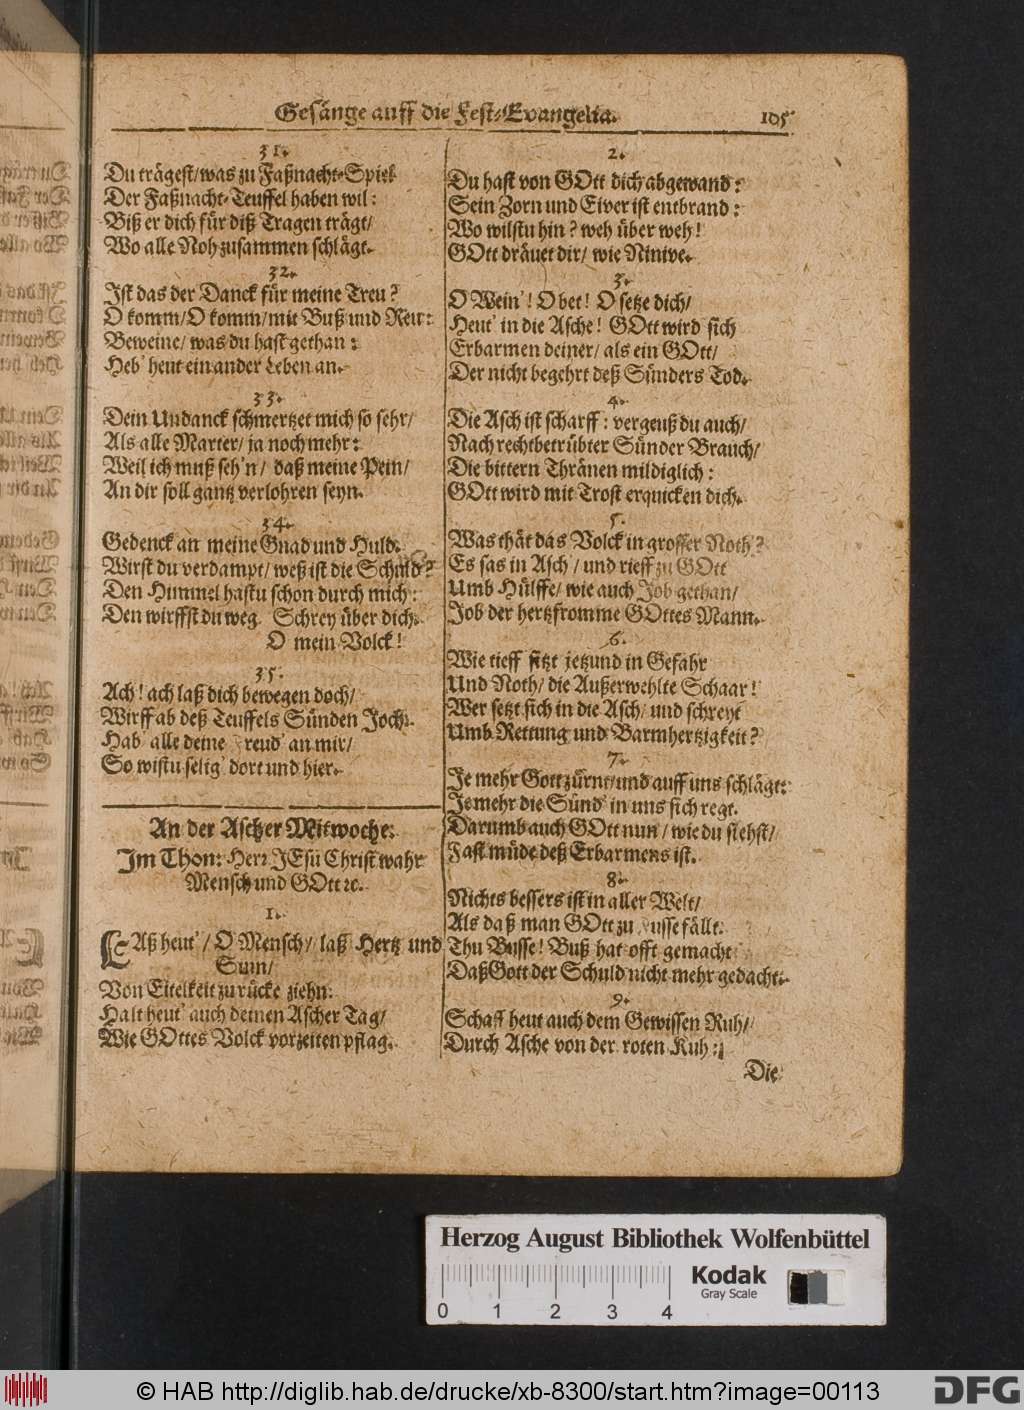 Gesänge auff die Fest-Evangelia. 105
31.
Du trägest/was zu Faßnacht-Spiel
Der Faßnacht-Teuffel haben wil:
Biß er dich für diß Tragen trägt/
Wo alle Noh zusammen schlägt.
32.
Ist das der Danck für meine Treu?
O komm/O komm/mit Buß und Reu:
Beweine/was du hast gethan:
Heb' heut ein ander Leben an.
33.
Dein Undanck schmertzet mich so sehr/
Als alle Marter/ja noch mehr:
Weil ich muß seh'n/ daß meine Pein/
An dir soll gantz verlohren seyn.
34.
Gedenck an meine Gnad und Huld.
Wirst du verdampt/weß ist die Schuld?
Den Himmel hastu schon durch mich:
Den wirffst du weg. Schrey über dich.
O mein Volck!
35.
Ach! ach laß dich bewegen doch/
Wirff ab deß Teuffels Sünden Joch.
Hab' alle deine reud' an mir/
So wistu selig dort und hier.
An der Ascher Mitwoche.
Im Thon: Herr JEsu Christ wahr
Mensch und GOtt ꝛc.
1.
LAß heut'/ O Mensch/ laß Hertz und
Sinn/
Von Eitelkeit zurücke ziehn:
Halt heut' auch deinen Ascher Tag/
Wie GOttes Volck vorzeiten pflag.
2.
Du hast von GOtt dich abgewand:
Sein Zorn und Eiver ist entbrand:
Wo wilstu hin? weh über weh!
GOtt dräuet dir/ wie Ninive.
3.
O Wein'! O bet! O setze dich/
Heut' in die Asche! GOtt wird sich
Erbarmen deiner/ als ein GOtt/
Der nicht begehrt deß Sünders Tod.
4.
Die Asch ist scharff: vergeuß du auch/
Nach recht betrübter Sünder Brauch/
Die bittern Thränen mildiglich:
GOtt wird mit Trost erquicken dich.
5.
Was thät das Volck in grosser Noth?
Es sas in Asch/ und rieff zu GOtt
Umb Hülffe/ wie auch Job gethan/
Job der hertzfromme GOttes Mann.
6.
Wie tieff sitzt jetzund in Gefahr
Und Noth/ die Außerwehlte Schaar!
Wer setzt sich in die Asch/ und schreyt
Umb Rettung und Barmhertzigkeit?
7.
Je mehr Gott zürnt/und auff uns schlägt:
Je mehr die Sünd' in uns sich regt.
Darumb auch GOtt nun/ wie du siehst/
Fast müde deß Erbarmens ist.
8.
Nichts bessers ist in aller Welt/
Als daß man GOtt zu usse fällt.
Thu Busse! Buß hat offt gemacht
Daß Gott der Schuld nicht mehr gedacht.
9.
Schaff heut auch dem Gewissen Ruh/
Durch Asche von der roten Kuh:
Die
Herzog August Bibliothek Wolfenbüttel
0 1 2 3 4
Kodak
Gray Scale
© HAB http://diglib.hab.de/drucke/xb-8300/start.htm?image=00113
DFG